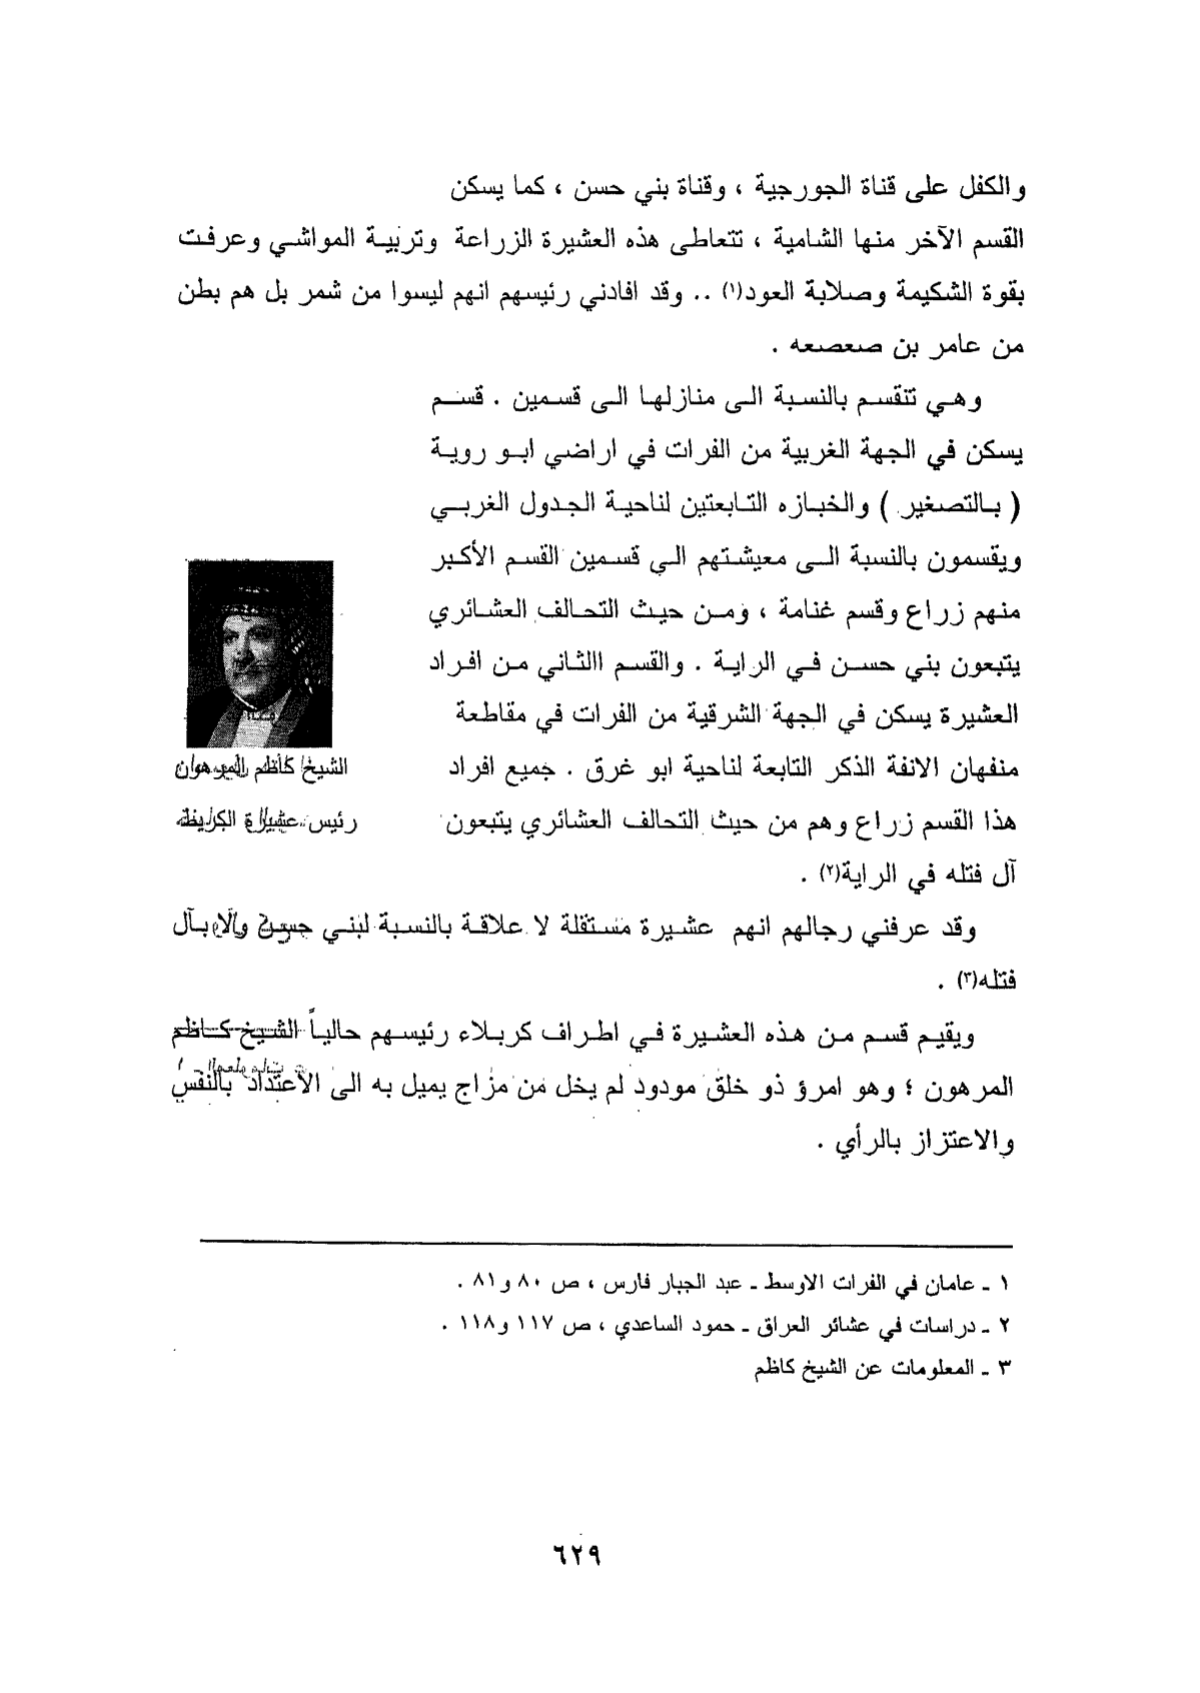 والكفل على قناة الجورجية ، وقناة بني حسن ، كما يسكن
القسم الآخر منها الشامية ، تتعاطى هذه العشيرة الزراعة وتربية المواشي وعرفت
بقوة الشكيمة وصلابة العود(١) .. وقد افادني رئيسهم انهم ليسوا من شمر بل هم بطن
من عامر بن صعصعه .
وهي تنقسم بالنسبة الى منازلها الى قسمين . قسم
يسكن في الجهة الغربية من الفرات في اراضي ابو روية
( بالتصغير ) والخبازه التابعتين لناحية الجدول الغربي
ويقسمون بالنسبة الى معيشتهم الى قسمين القسم الأكبر
منهم زراع وقسم غنامة ، ومن حيث التحالف العشائري
يتبعون بني حسن في الراية . والقسم االثاني من افراد
العشيرة يسكن في الجهة الشرقية من الفرات في مقاطعة
منفهان الانفة الذكر التابعة لناحية ابو غرق . جميع افراد
هذا القسم زراع وهم من حيث التحالف العشائري يتبعون
آل فتله في الراية(٢) .
الشيخ كاظم المرهون
رئيس عشيرة
وقد عرفني رجالهم انهم عشيرة مستقلة لا علاقة بالنسبة لبني حسن ولا بآل
فتله(٣) .
ويقيم قسم من هذه العشيرة في اطراف كربلاء رئيسهم حالياً الشيخ كاظم
المرهون ؛ وهو امرؤ ذو خلق مودود لم يخل من مزاج يميل به الى الاعتداد بالنفس
والاعتزاز بالرأي .
١ ـ عامان في الفرات الاوسط ـ عبد الجبار فارس ، ص ٨٠ و٨١ .
٢ ـ دراسات في عشائر العراق ـ حمود الساعدي ، ص ١١٧ و١١٨ .
٣ ـ المعلومات عن الشيخ كاظم
٦٢٩